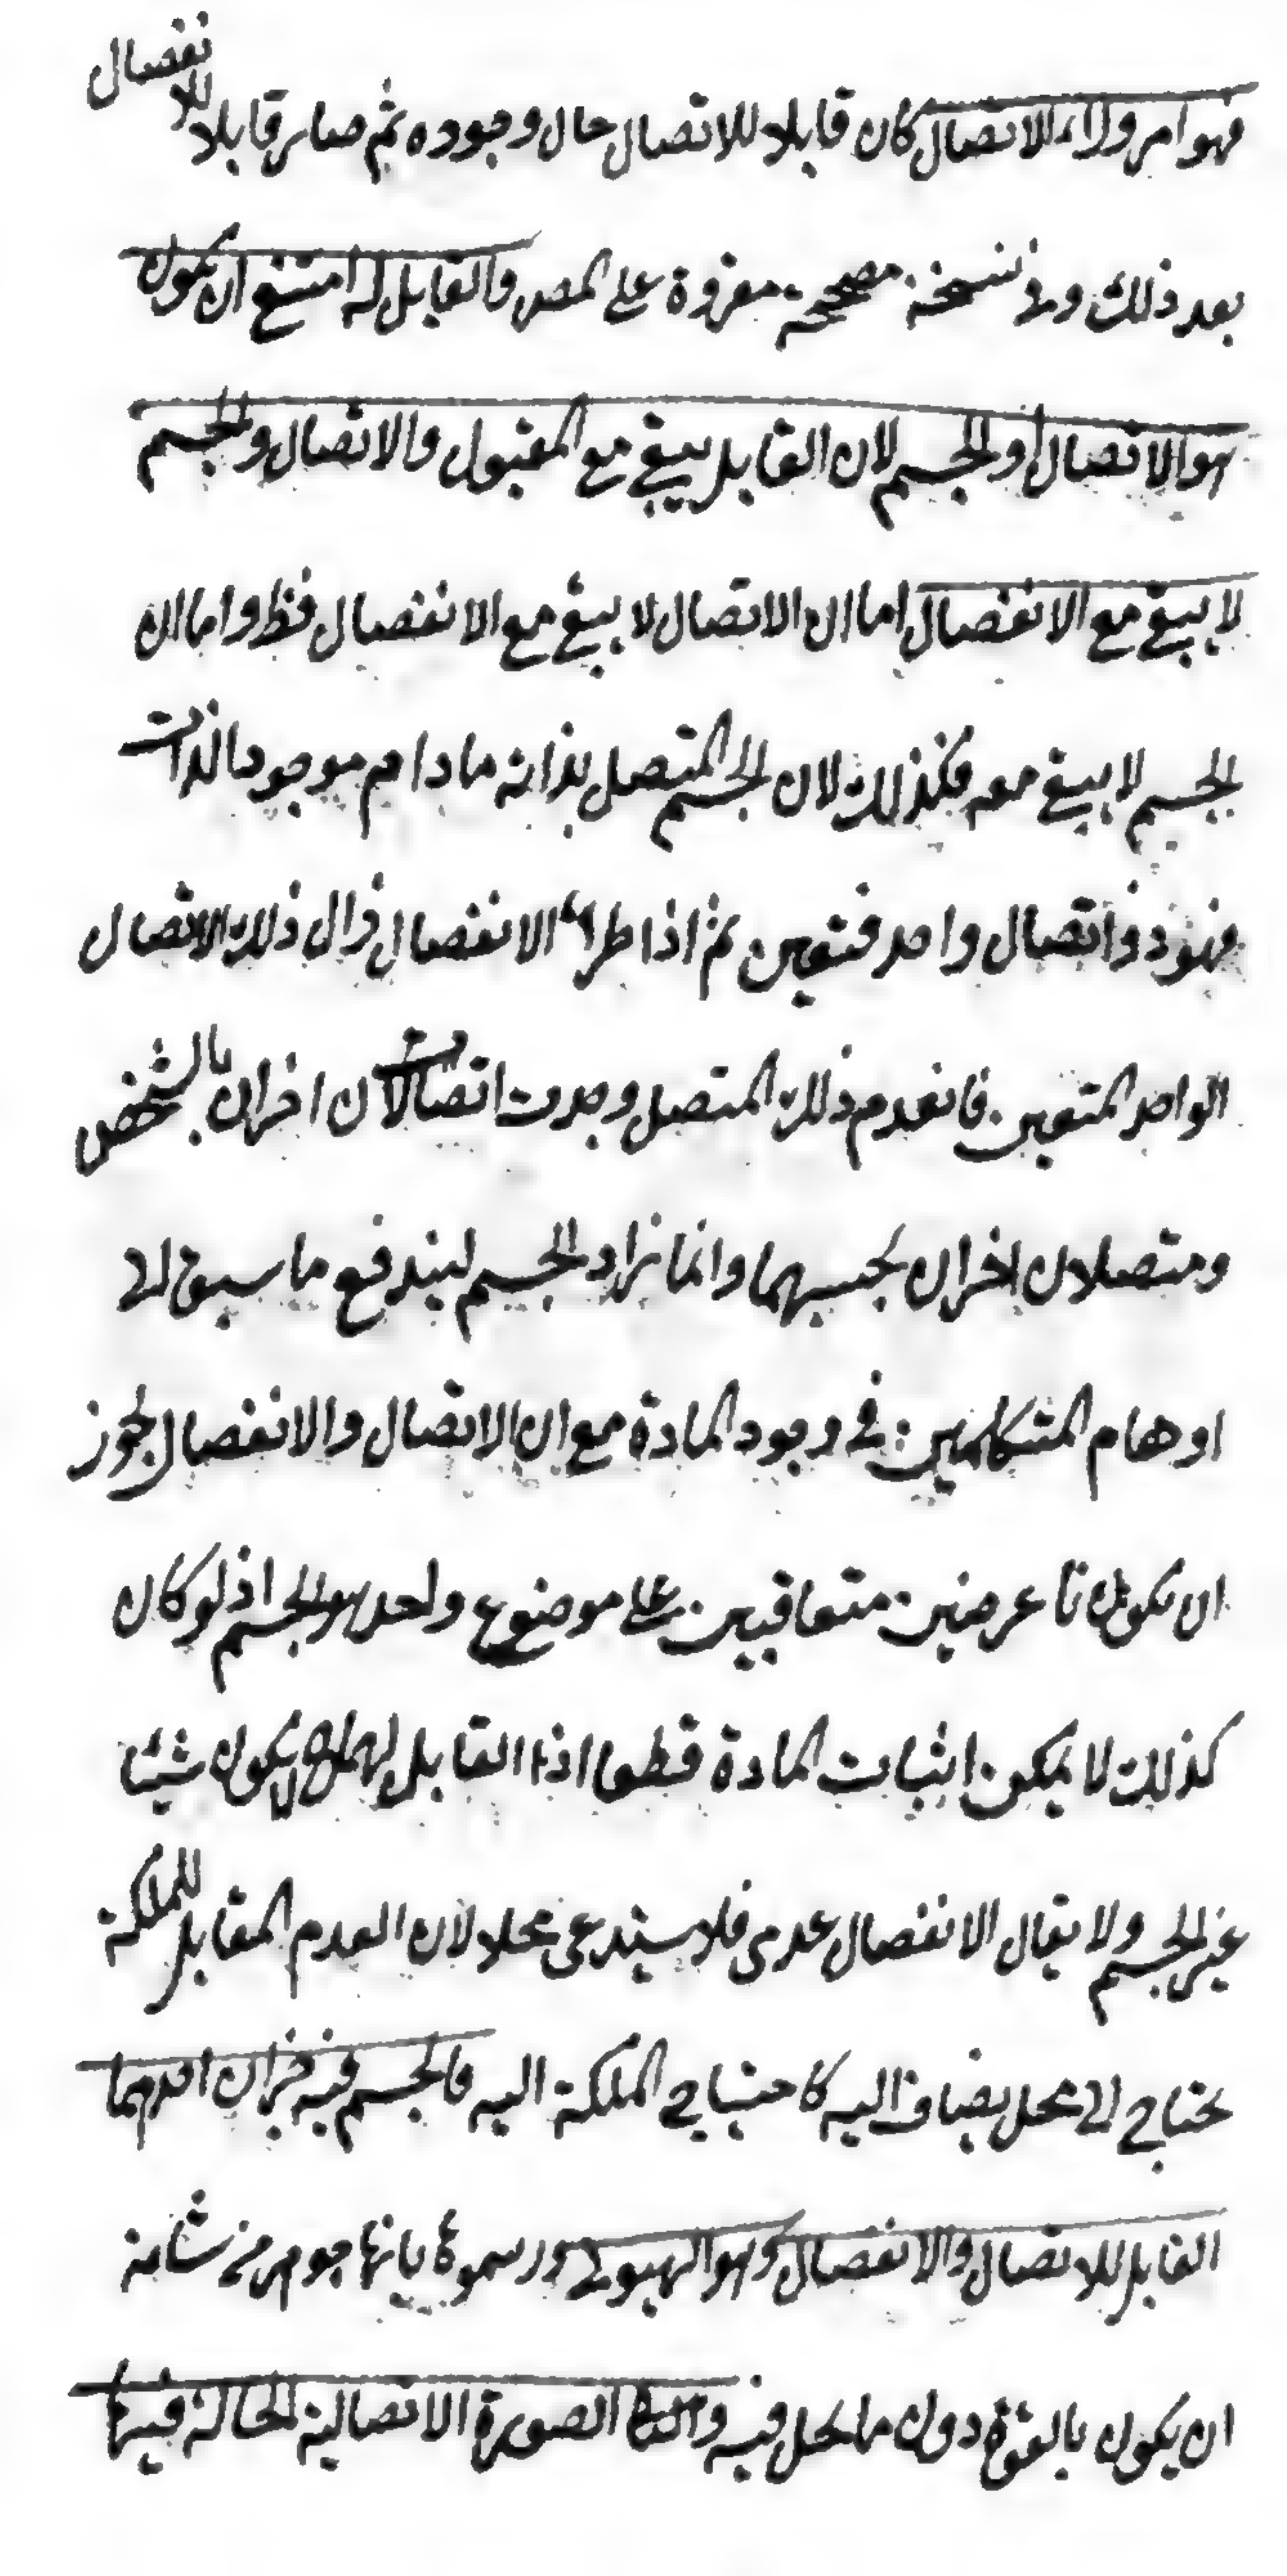 فهو امر وراء الاتصال كان قابلا للاتصال حال وجوده ثم صار قابلا للانفصال
بعد ذلك وفى نسخة مصححة مقروة على المص والقابل له امتنع ان يكون
هو الاتصال او الجسم لان القابل يبقى مع المقبول والاتصال والجسم
لا يبقى مع الانفصال اما ان الاتصال لا يبقى مع الانفصال فظ واما ان
الجسم لا يبقى معه فكذلك لان الجسم المتصل بذاته ما دام موجود الذات
فهو ذو اتصال واحد متعين ثم اذا طراء الانفصال زال ذلك الاتصال
الواحد المتعين فانعدم ذلك المتصل وحدث اتصالان اخران بالشخص
ومتصلان اخران بحسبهما وانما زاد الجسم ليندفع ما سبق الى
اوهام المتكلمين فى وجود المادة مع ان الاتصال والانفصال يجوز
ان يكونا عرضين متعاقبين على موضوع واحد هو الجسم اذ لو كان
كذلك لا يمكن اثبات المادة قطعا اذ القابل لهما لا يكون شيئا
غير الجسم ولا يقال الانفصال عدمى فلا يستدعى محلا لان العدم المقابل للملكة
يحتاج الى محل يضاف اليه كاحتياج الملكة اليه فالجسم فيه جزان احدهما
القابل للاتصال والانفصال وهو الهيولى ورسموها بانها جوهر من شانه
ان يكون بالقوة دون ما يحل فيه والثانى الصورة الاتصالية الحالة فيها